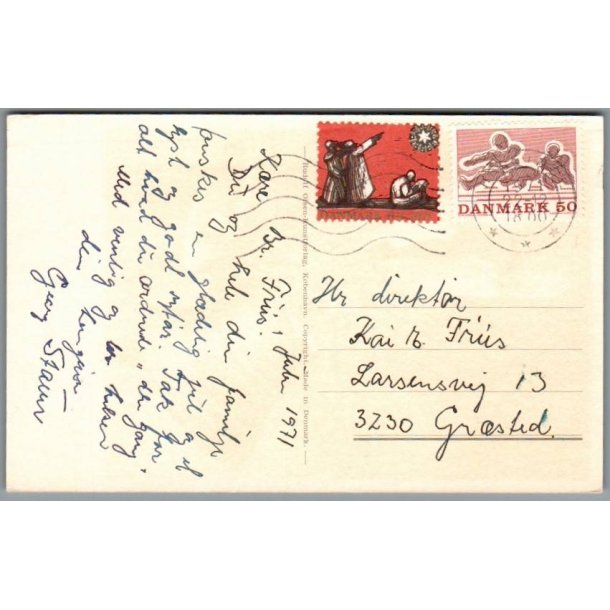 Kære Br. Friis! Julen 1971
Du og hele din familje
ønskes en glædelig Jul og et
lyst og godt nytår. Tak for
alt hvad du ordnede "den gang".
Med venlig og hilsen
din hengivne
Georg
DANMARK
DANMARK 50
18.00
Hr direktør
Kai B. Friis
Larsensvej 13
3230 Græsted.
Kunstforlag, København. Copyright. Made in Denmark.